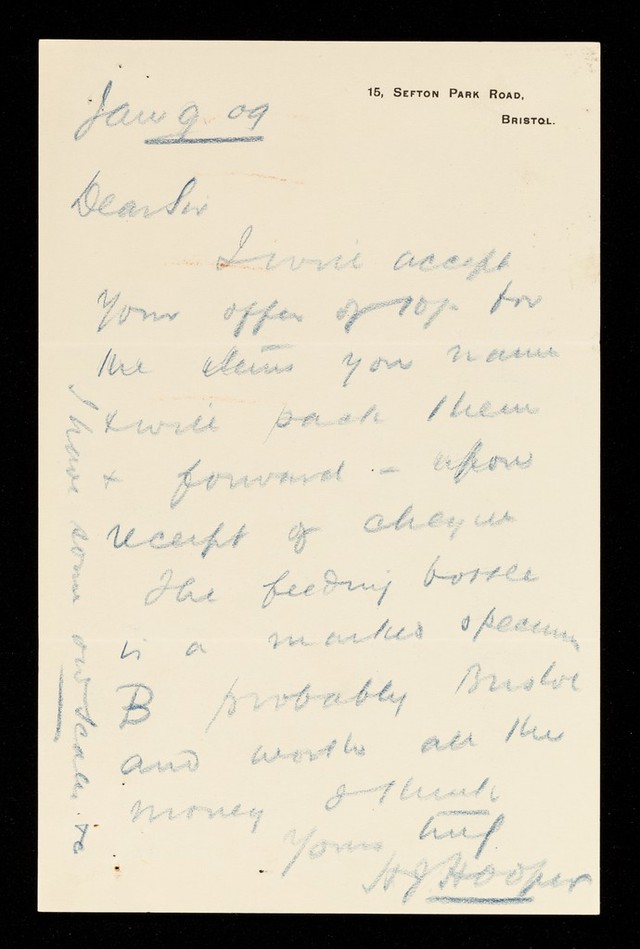 15, Sefton Park Road,
Bristol.
Jan 9. 09
Dear Sir
I will accept
your offer of 10/- for
the items you name
& will pack them
& forward - upon
receipt of cheque
The feeding bottle
is a marked specimen
B probably Bristol
and worth all the
money I think
Yours truly
H J Hooper
I have some old scales &c